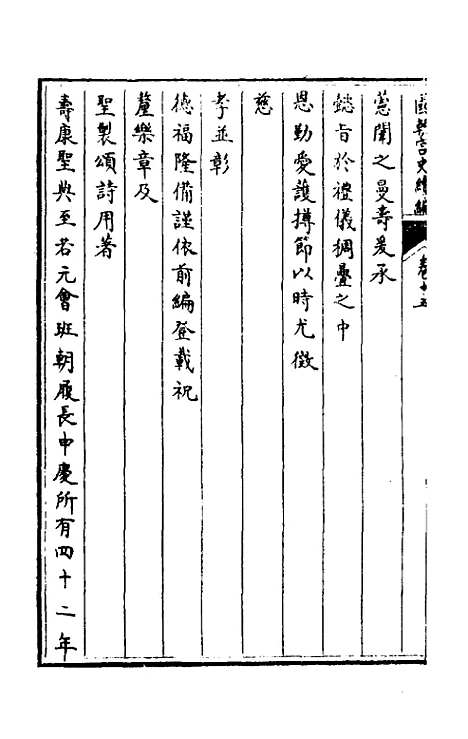 國朝宮史續編 卷十五
慈闈之曼壽爰承
懿旨於禮儀稠疊之中
恩勤愛護撙節以時尤徵
慈
孝並彰
德福隆備謹依前編登載祝
釐樂章及
聖製頌詩用著
壽康聖典至若元會班朝履長申慶所有四十二年